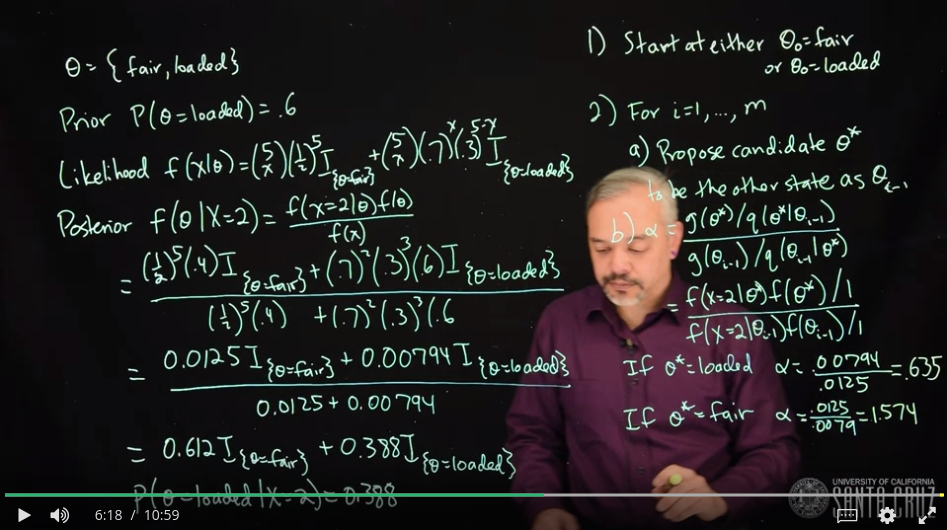 θ = {fair, loaded}
Prior P(θ=loaded) = .6
Likelihood f(x|θ) = (5 x)(1/2)^5 I_{θ=fair} + (5 x)(.7)^x(.3)^{5-x} I_{θ=loaded}
Posterior f(θ|X=2) = f(x=2|θ)f(θ) / f(x)
= (1/2)^5(.4)I_{θ=fair} + (.7)^2(.3)^3(.6)I_{θ=loaded}
(1/2)^5(.4) + (.7)^2(.3)^3(.6
= 0.0125 I_{θ=fair} + 0.00794 I_{θ=loaded}
0.0125 + 0.00794
= 0.612 I_{θ=fair} + 0.388 I_{θ=loaded}
P(θ=loaded|X=2) = 0.388
1) Start at either θ₀=fair
or θ₀=loaded
2) For i=1, ..., m
a) Propose candidate θ*
to be the other state as θ_{i-1}
b) α = g(θ*)/q(θ*|θ_{i-1})
g(θ_{i-1})/q(θ_{i-1}|θ*)
= f(x=2|θ*)f(θ*)/1
f(x=2|θ_{i-1})f(θ_{i-1})/1
If θ*=loaded α = .00794/.0125 = .635
If θ*=fair α = .0125/.0079 = 1.574
UNIVERSITY OF CALIFORNIA
SANTA CRUZ
6:18 / 10:59